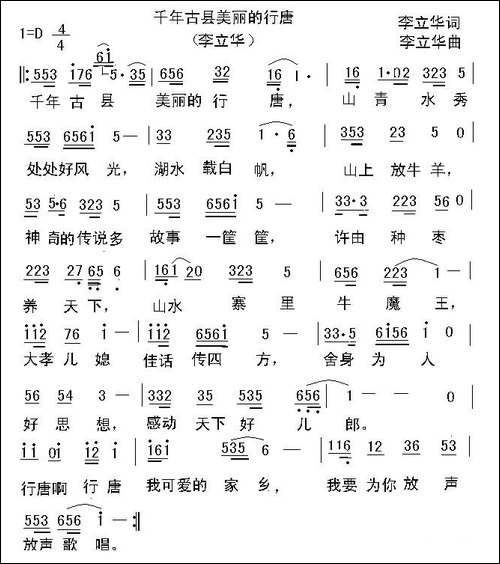 千年古县美丽的行唐
1=D 4/4 （李立华） 李立华词
李立华曲
𝄆 553 176 61 5·35 | 656 32 16 1· | 16 1·02 323 5 |
千年古县 美丽的行 唐， 山青水秀
553 6561 5 — | 33 235 1·6 | 353 23 5 0 |
处处好风光， 湖水载白帆， 山上放牛羊，
53 5·6 323 5 | 553 6561 5 — | 33·3 223 56 0 |
神奇的传说多 故事一筐筐， 许由种枣
223 27·65 6 | 161 20 323 5 | 656 223 1 — |
养天下， 山水寨里 牛魔王，
112 76 1 — | 112 6561 5 — | 33·5 6156 1 0 |
大孝儿媳 佳话传四方， 舍身为人
56 54 3 — | 332 35 535 656 | 1 — — 0 |
好思想， 感动天下好儿郎。
11 01 12 1 | 161 535 6 — | 116 12 36 53 |
行唐啊行唐 我可爱的家乡， 我要为你放声
553 656 1 — 𝄇
放声歌唱。